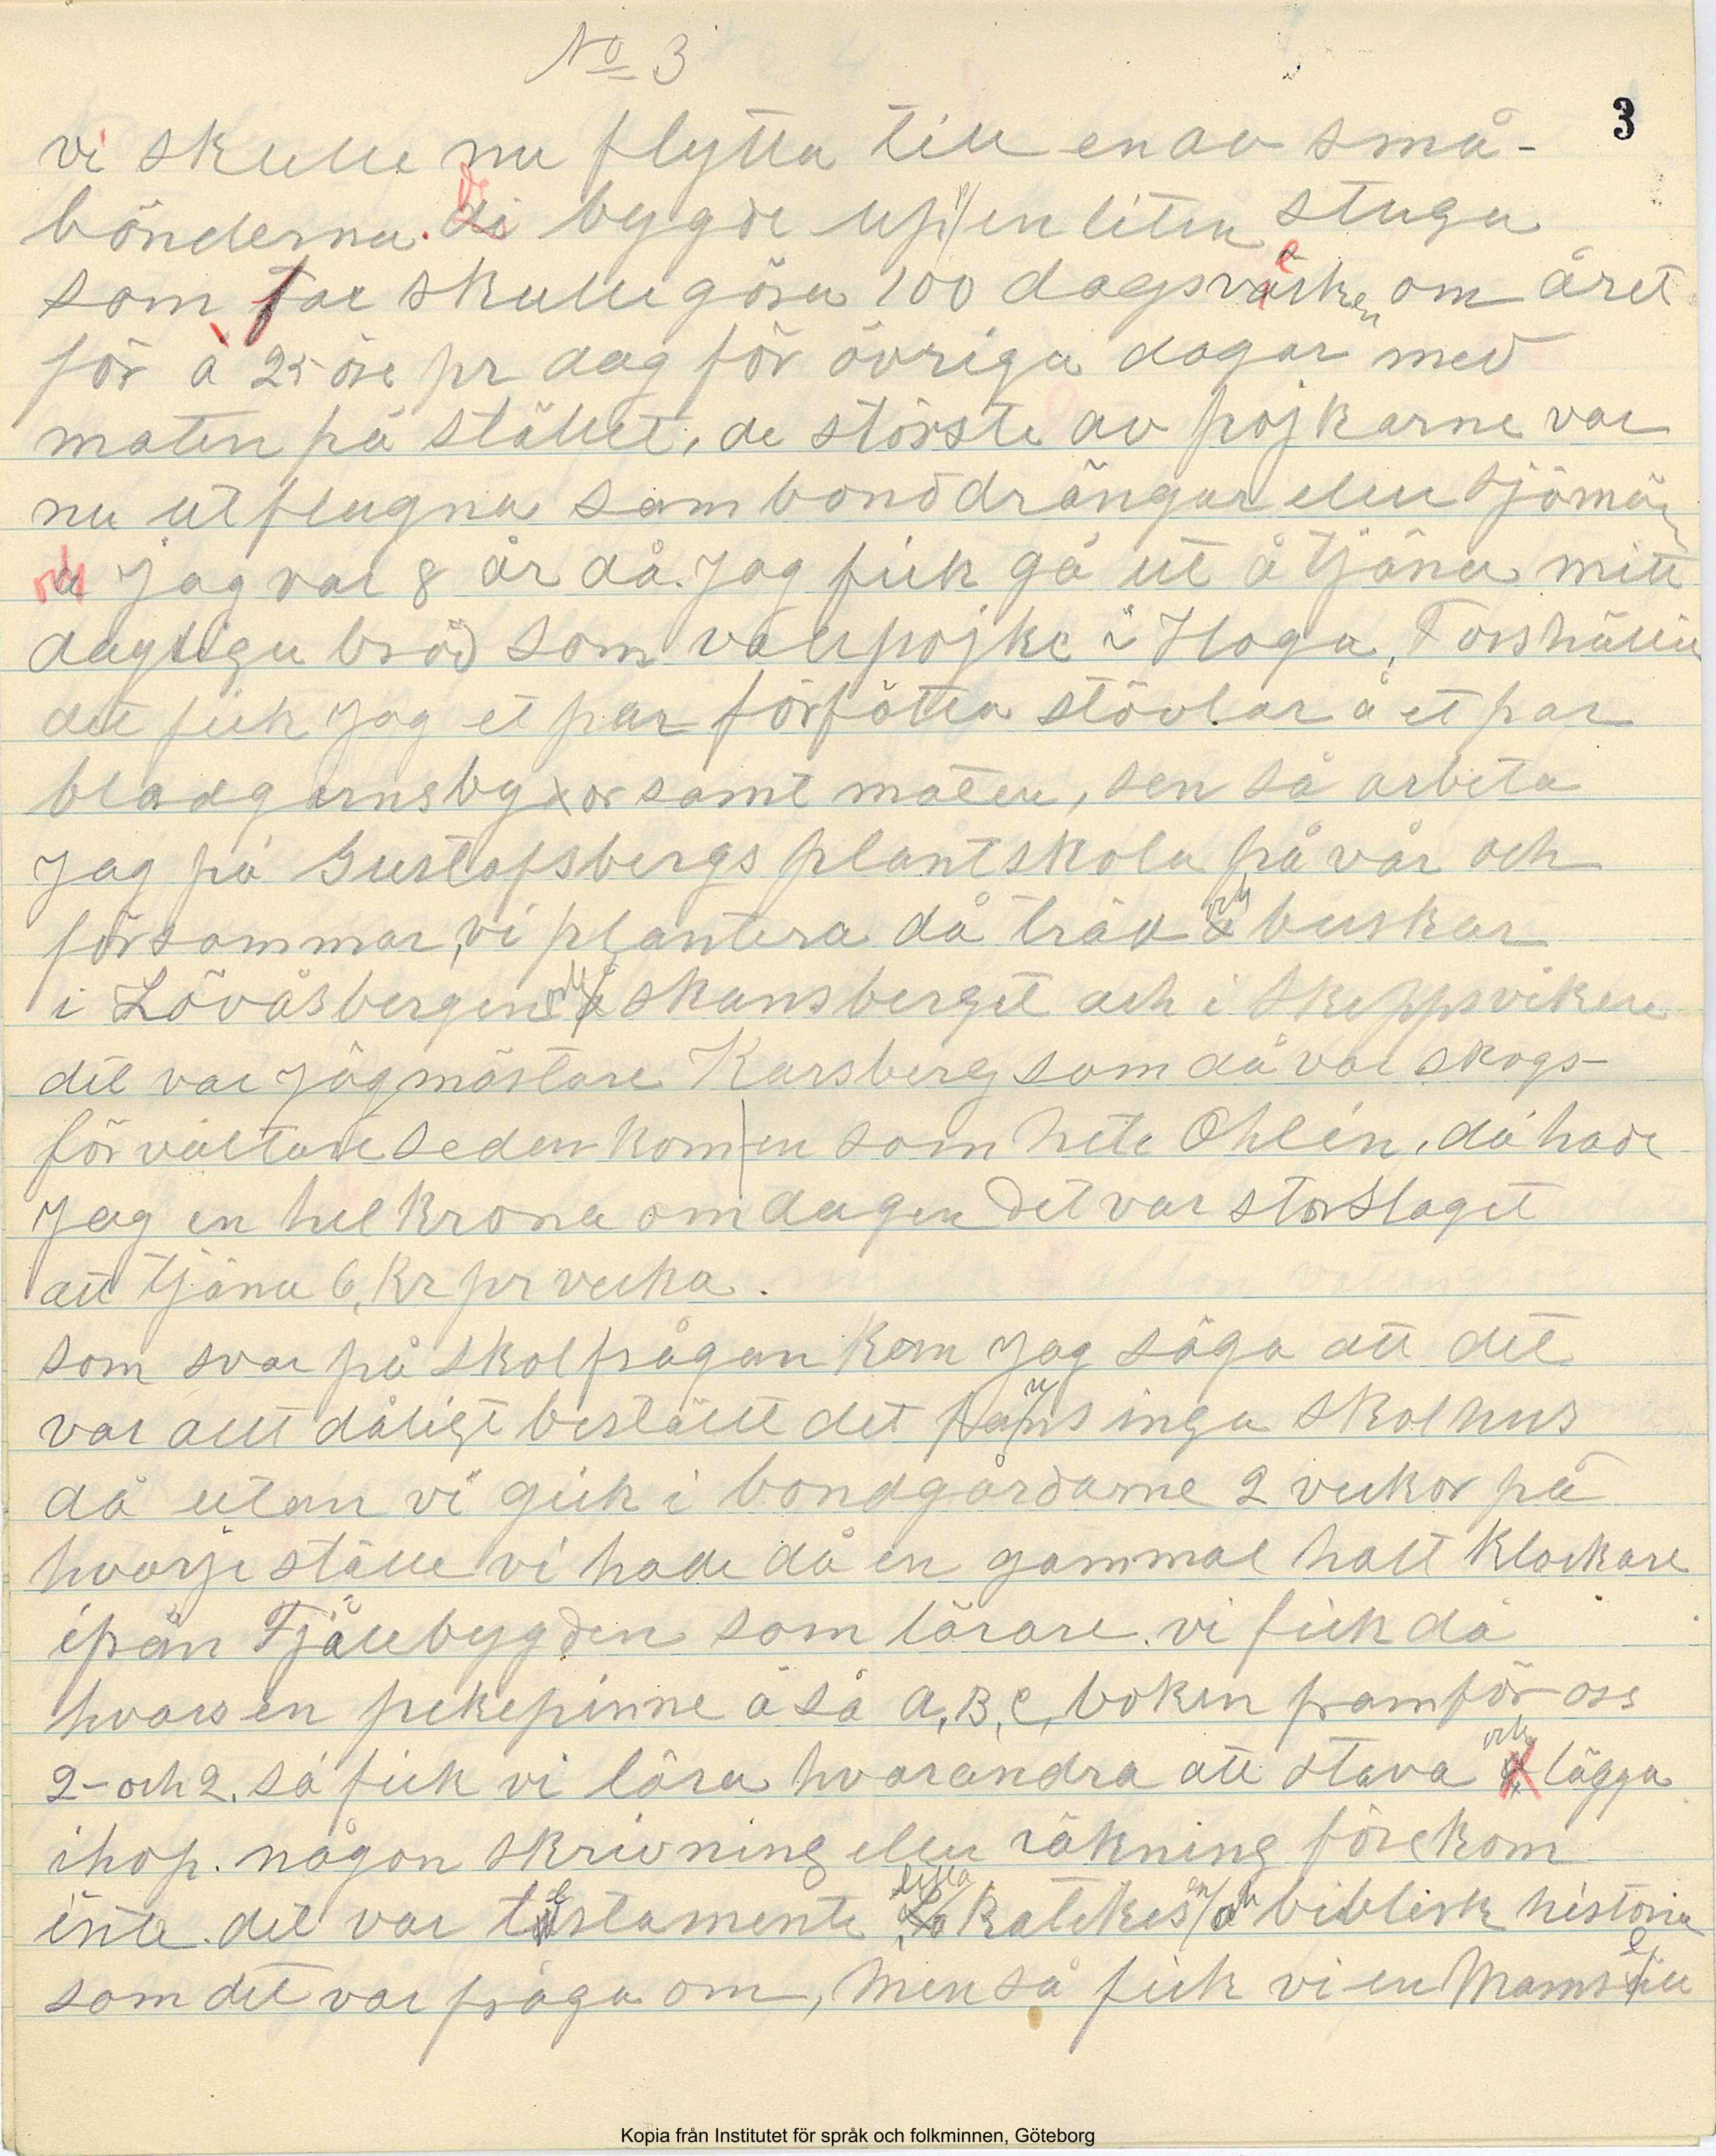 No 3
3
vi skulle nu flytta till en av små-
bönderna. De bygde upp en liten stuga
som far skulle göra 100 dagsverken om året
för à 25 öre pr dag för övriga dagar med
maten på stället, de störste av pojkarne var
nu utflugna som bonddrängar eller sjömän
och jag var 8 år då. Jag fick gå ut å tjäna mitt
dagliga bröd som vallpojke i Hoga, Forshälla
det fick Jag et par förfötta stövlar å et par
bladgarnsbyxor samt maten, sen så arbeta
Jag på Gustafsbergs plantskola på vår och
försommar, vi plantera då träd och buskar
i Lövåsbergen och skansberget och i Skeppsviken
det var jägmästare Karsberg som då var skogs-
förvaltare sedan kom en som hete Ohlén, då hade
Jag en hel krona om dagen det var storslaget
att tjäna 6, kr pr vecka.
som svar på skolfrågan kom Jag säga att det
var allt dåligt beställt det fanns inga skolhus
då utan vi gick i bondgårdarne 2 veckor på
hvarje ställe vi hade då en gammal halt klockare
ifrån Fjällebygden som lärare. vi fick då
hvars en pekepinne å så A, B, C, boken framför oss
2-och 2. så fick vi lära hvarandra att stava och lägga
ihop. någon skrivning eller räkning förekom
inte. det var testamente, lilla katekesen och biblisk historia
som det var fråga om, Men så fick vi en Mamsell
Kopia från Institutet för språk och folkminnen, Göteborg